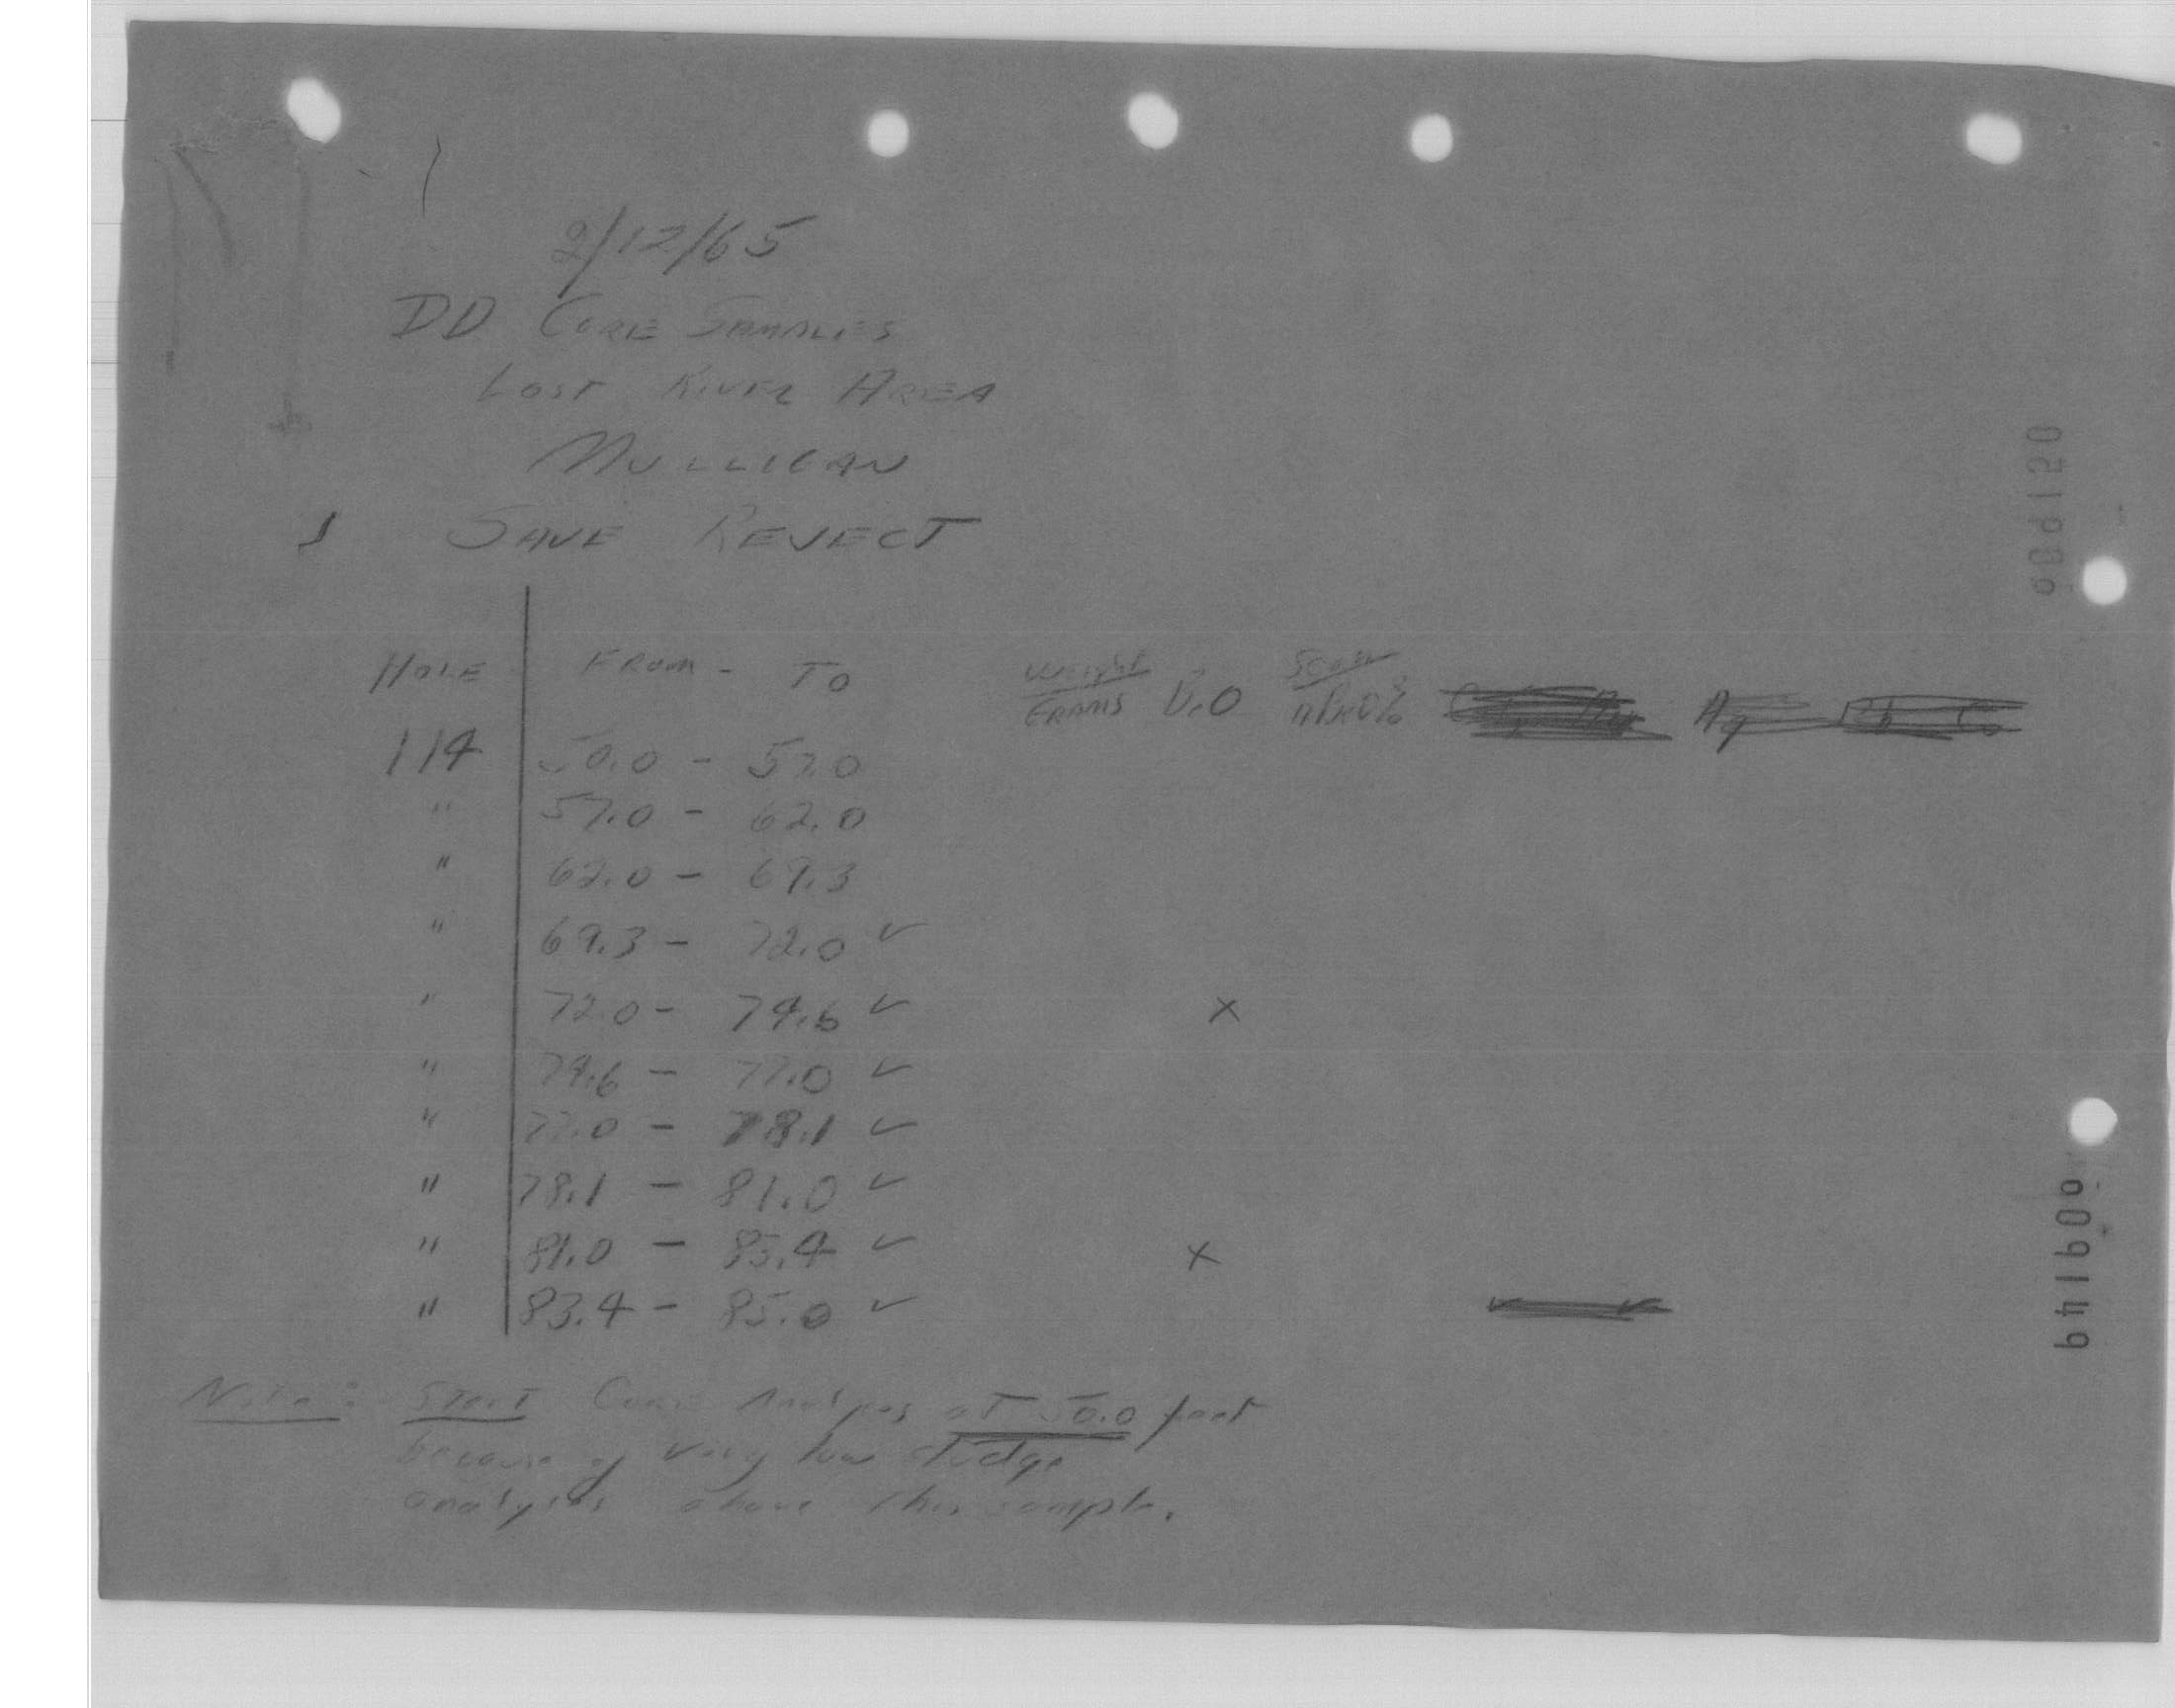 2/12/65
DD CORE SAMPLES
LOST RIVER AREA
MULLIGAN
SAVE REJECT
HOLE FROM - TO Weight GRAMS BeO Scan BeO%
114 50.0 - 57.0
" 57.0 - 62.0
" 62.0 - 69.3
" 69.3 - 72.0 ✓
" 72.0 - 74.6 ✓ x
" 74.6 - 77.0 ✓
" 77.0 - 78.1 ✓
" 78.1 - 81.0 ✓
" 81.0 - 83.4 ✓ x
" 83.4 - 85.0 ✓
Note: Start Core Analyses at 50.0 feet
because of very low sludge
analyses above this sample.
009150
009149